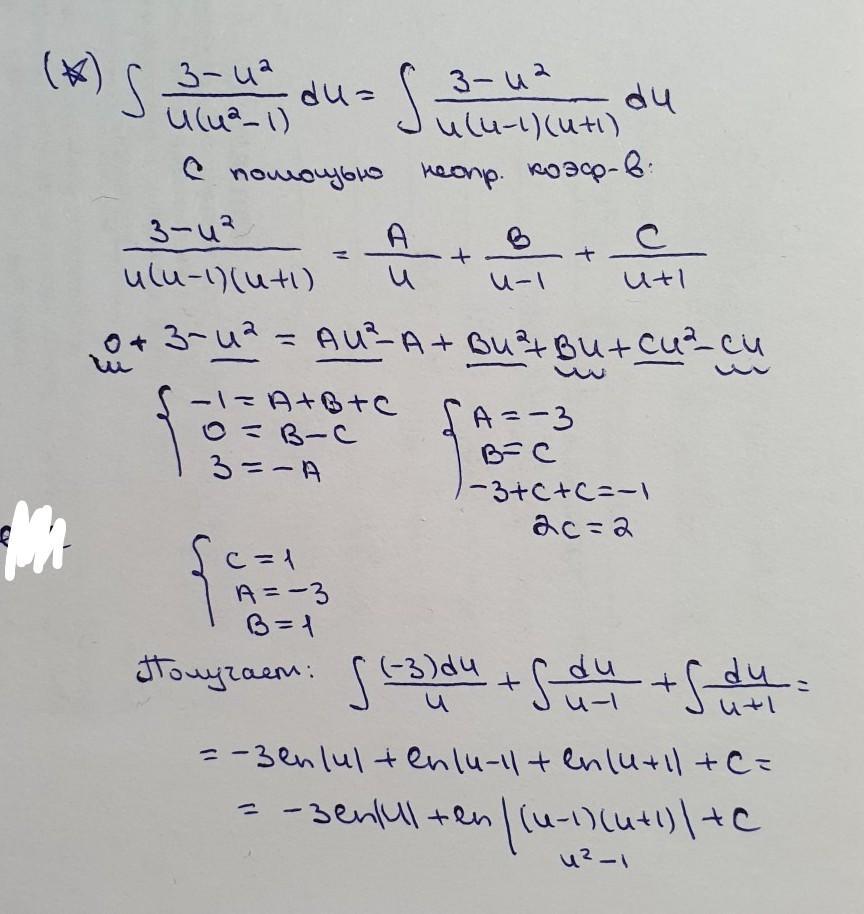 (*) ∫ 3-u² / u(u²-1) du = ∫ 3-u² / u(u-1)(u+1) du
С помощью неопр. коэф-в:
3-u² / u(u-1)(u+1) = A / u + B / u-1 + C / u+1
0 + 3-u² = Au²-A + Bu²+Bu+Cu²-Cu
{ -1 = A+B+C { A = -3
0 = B-C B = C
3 = -A -3+C+C=-1
2C = 2
{ C = 1
A = -3
B = 1
Получаем: ∫ (-3)du / u + ∫ du / u-1 + ∫ du / u+1 =
= -3ln|u| + ln|u-1| + ln|u+1| + C =
= -3ln|u| + ln|(u-1)(u+1)| + C
u²-1